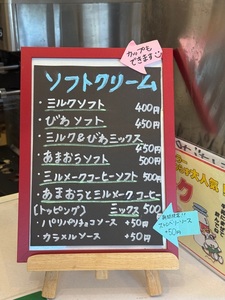 カップも
できます
ソフトクリーム
・ミルクソフト 400円
・びわソフト 450円
・ミルク&びわミックス 450円
・あまおうソフト 500円
・ミルメークコーヒーソフト 500円
・あまおうとミルメークコーヒー
ミックス 500
[トッピング]
・パリパリチョコソース +50円
・カラメルソース +50円
+50円
大人気